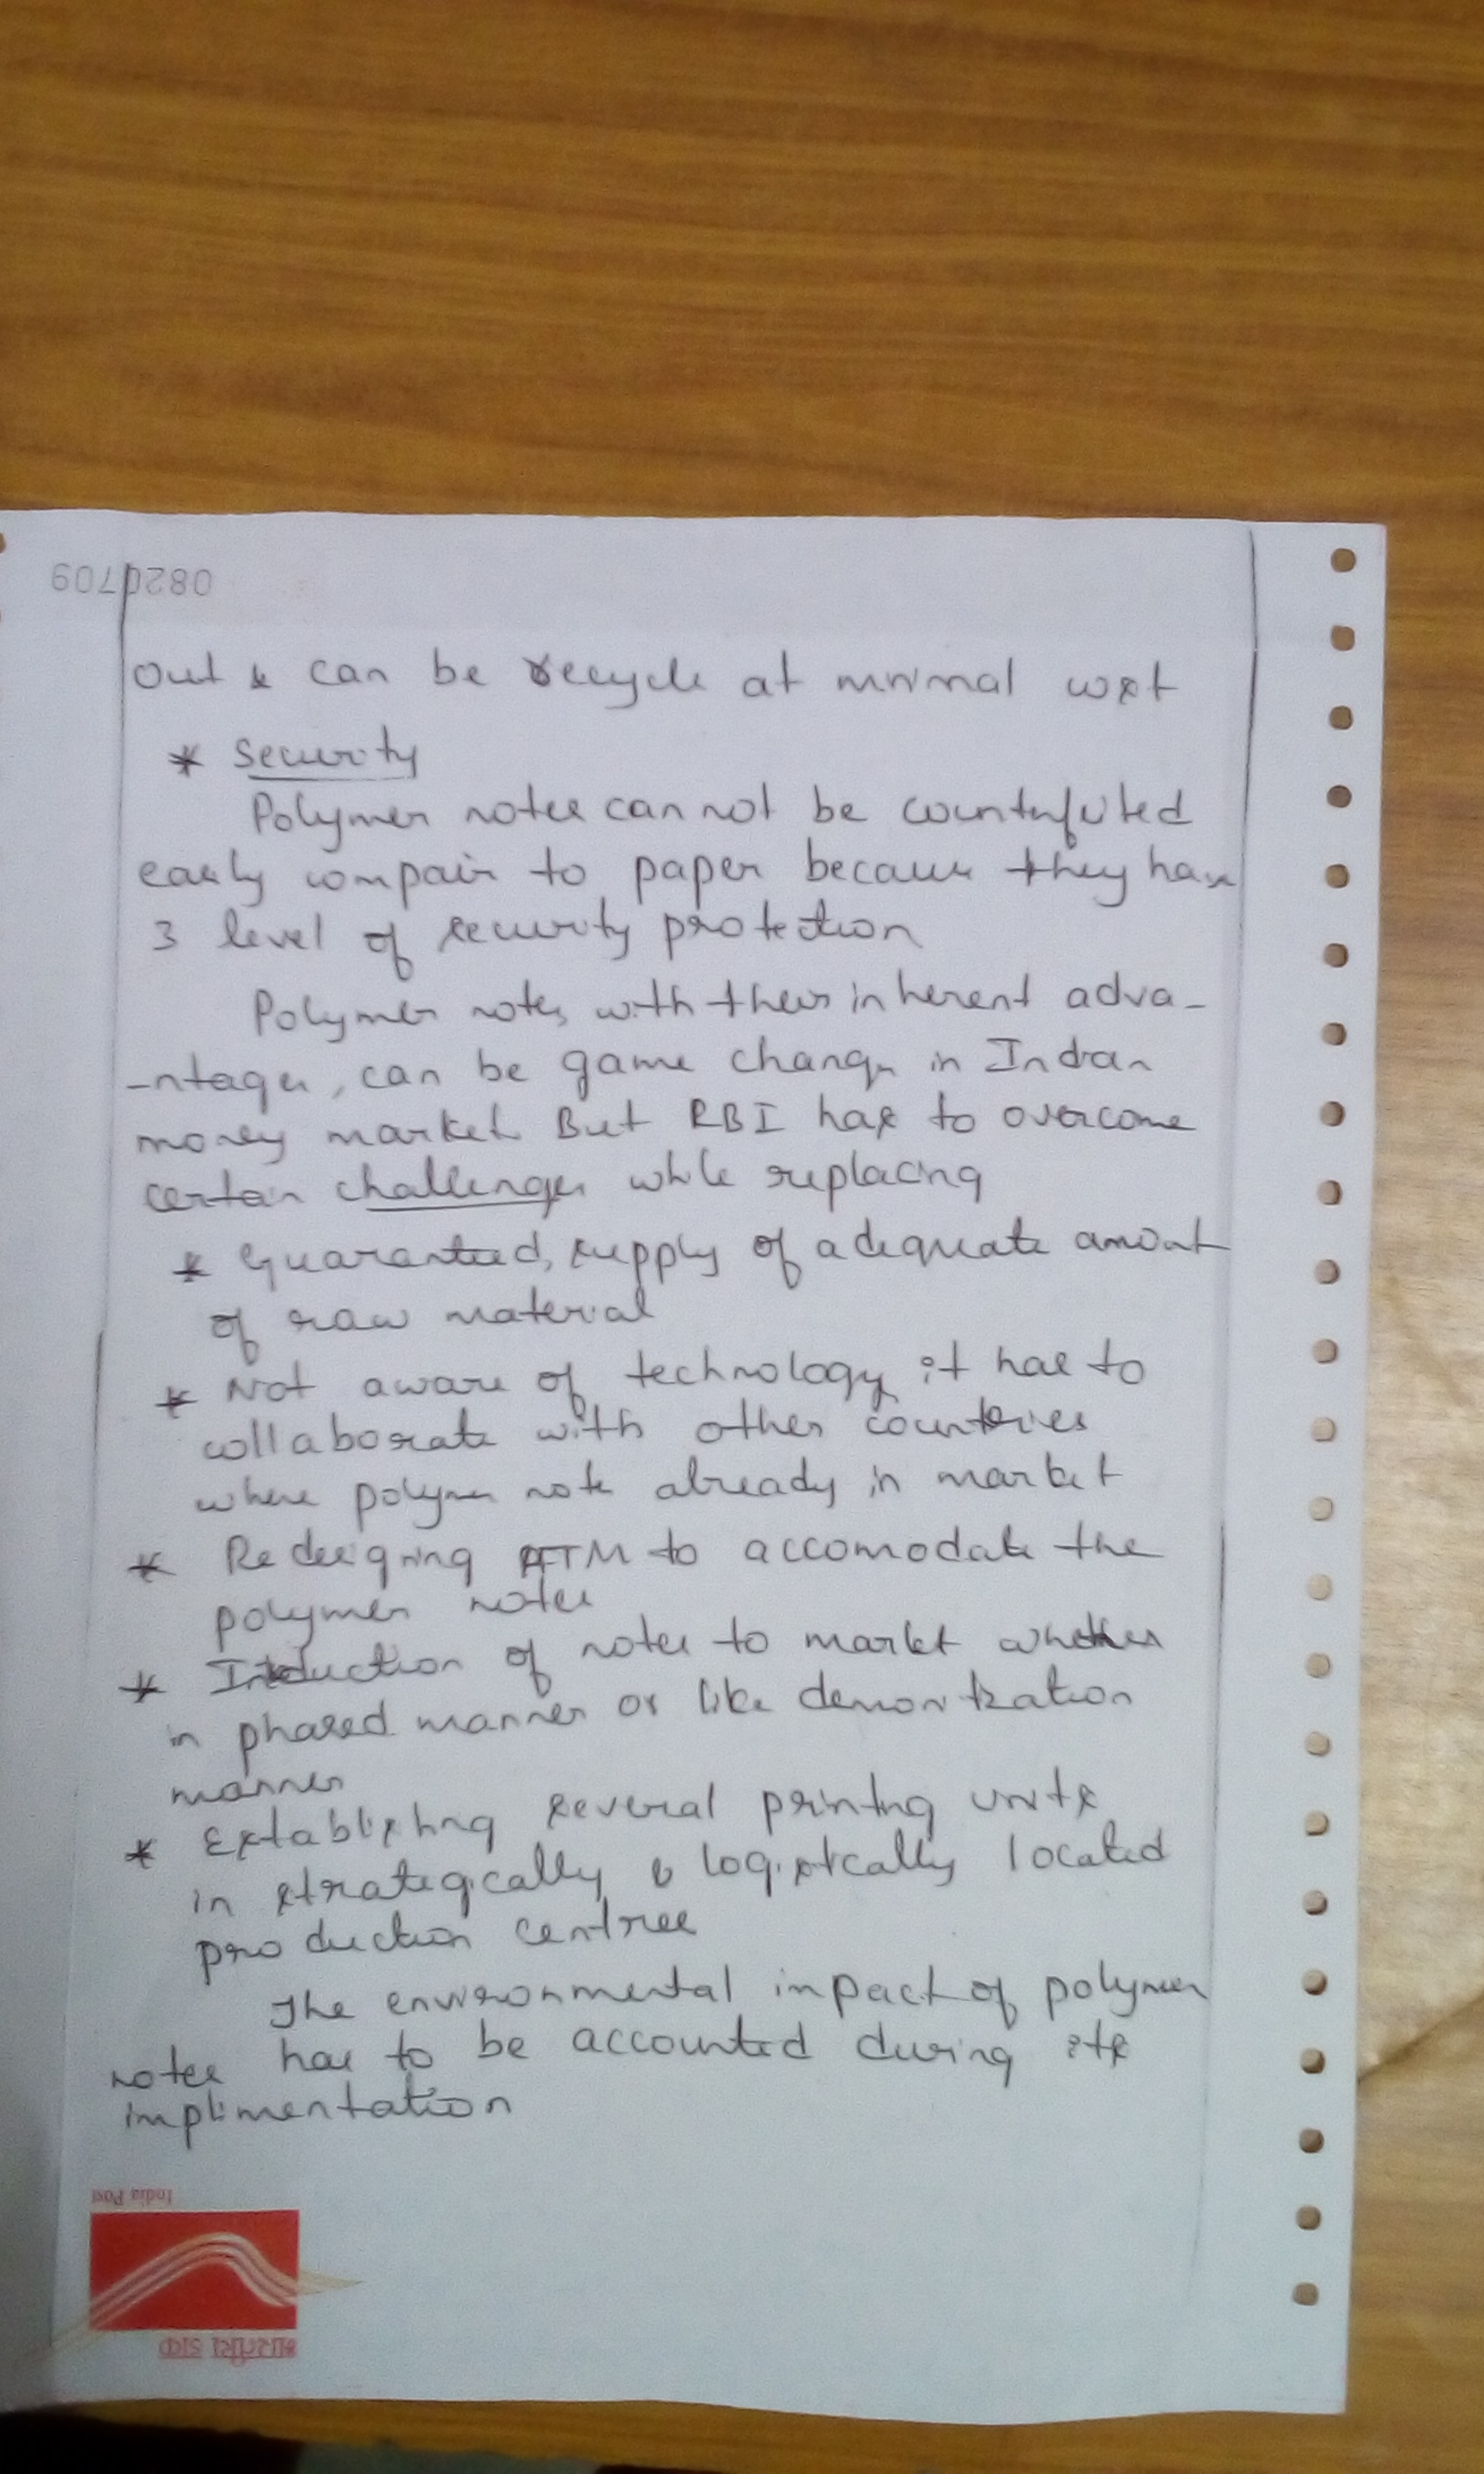 0820709
out & can be recycle at minimal cost
* Security
Polymer notes cannot be counterfuited
easily compair to paper because they have
3 level of security protection
Polymer notes, with their inherent adva-
-ntages, can be game changer in Indian
money market. But RBI has to overcome
certain challenges while replacing
* Guaranteed, supply of adequate amount
of raw material
* Not aware of technology, it has to
collaborate with other countries
where polymer note already in market
* Redesigning ATM to accomodate the
polymer notes
* Intoduction of notes to market whether
in phased manner or like demonitization
manner
* Establishing several printing units
in strategically & logistically located
production centres
The environmental impact of polymer
notes has to be accounted during its
implimentation
India Post
भारतीय डाक